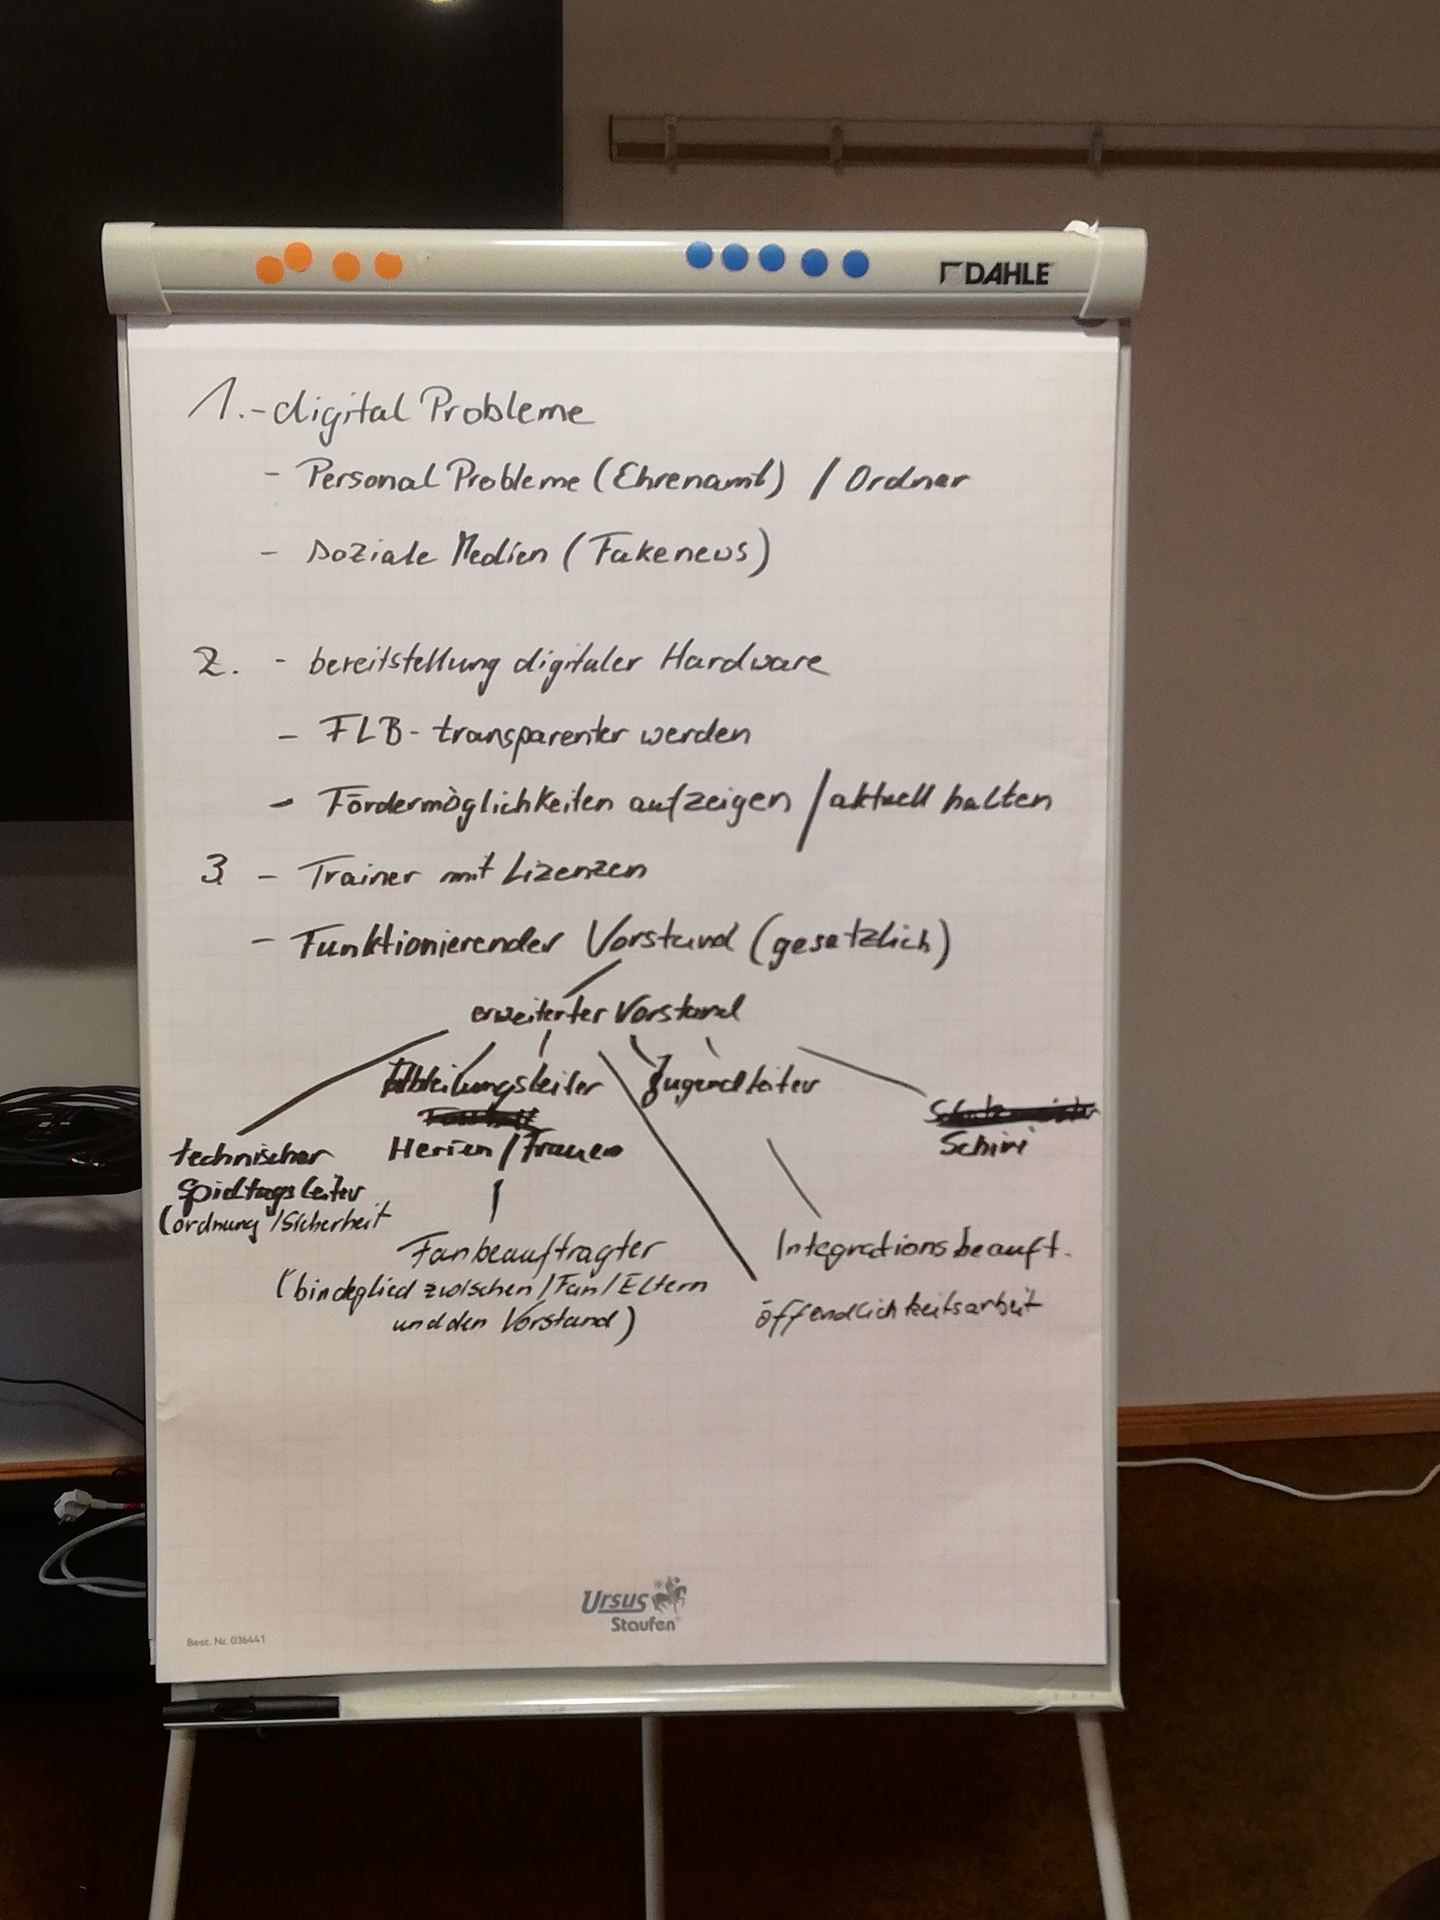 DAHLE
1. - digital Probleme
- Personal Probleme (Ehrenamt) / Ordner
- soziale Medien (Fakenews)
2. - bereitstellung digitaler Hardware
- FLB - transparenter werden
- Fördermöglichkeiten aufzeigen / aktuell halten
3 - Trainer mit Lizenzen
- Funktionierender Vorstand (gesetzlich)
erweiterter Vorstand
Abteilungsleiter
Jugendleiter
Herren / Frauen
Schiri
technischer
Spieltagsleiter
(ordnung / Sicherheit
Fanbeauftragter
(bindeglied zwischen / Fan / Eltern
und den Vorstand)
Integrationsbeauft.
öffendlichkeitsarbeit
Ursus
Staufen
Best. Nr. 036441